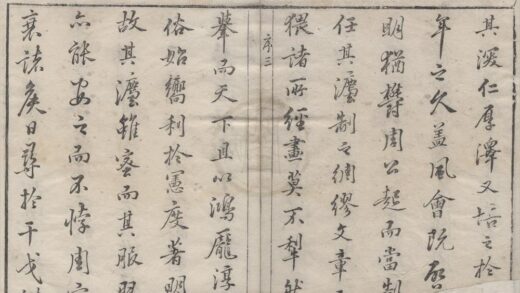 其深仁厚澤又培之於
年之久蓋風會既啓
明猶欝周公起而當制
任其灋制之綢繆文章
猥諸所經畫莫不犁然
序三
舉而天下且以鴻龐淳
俗始嚮利於憲度著明
故其灋雖密而其服習
亦能安之而不悖周
衰諸侯日尋於干戈